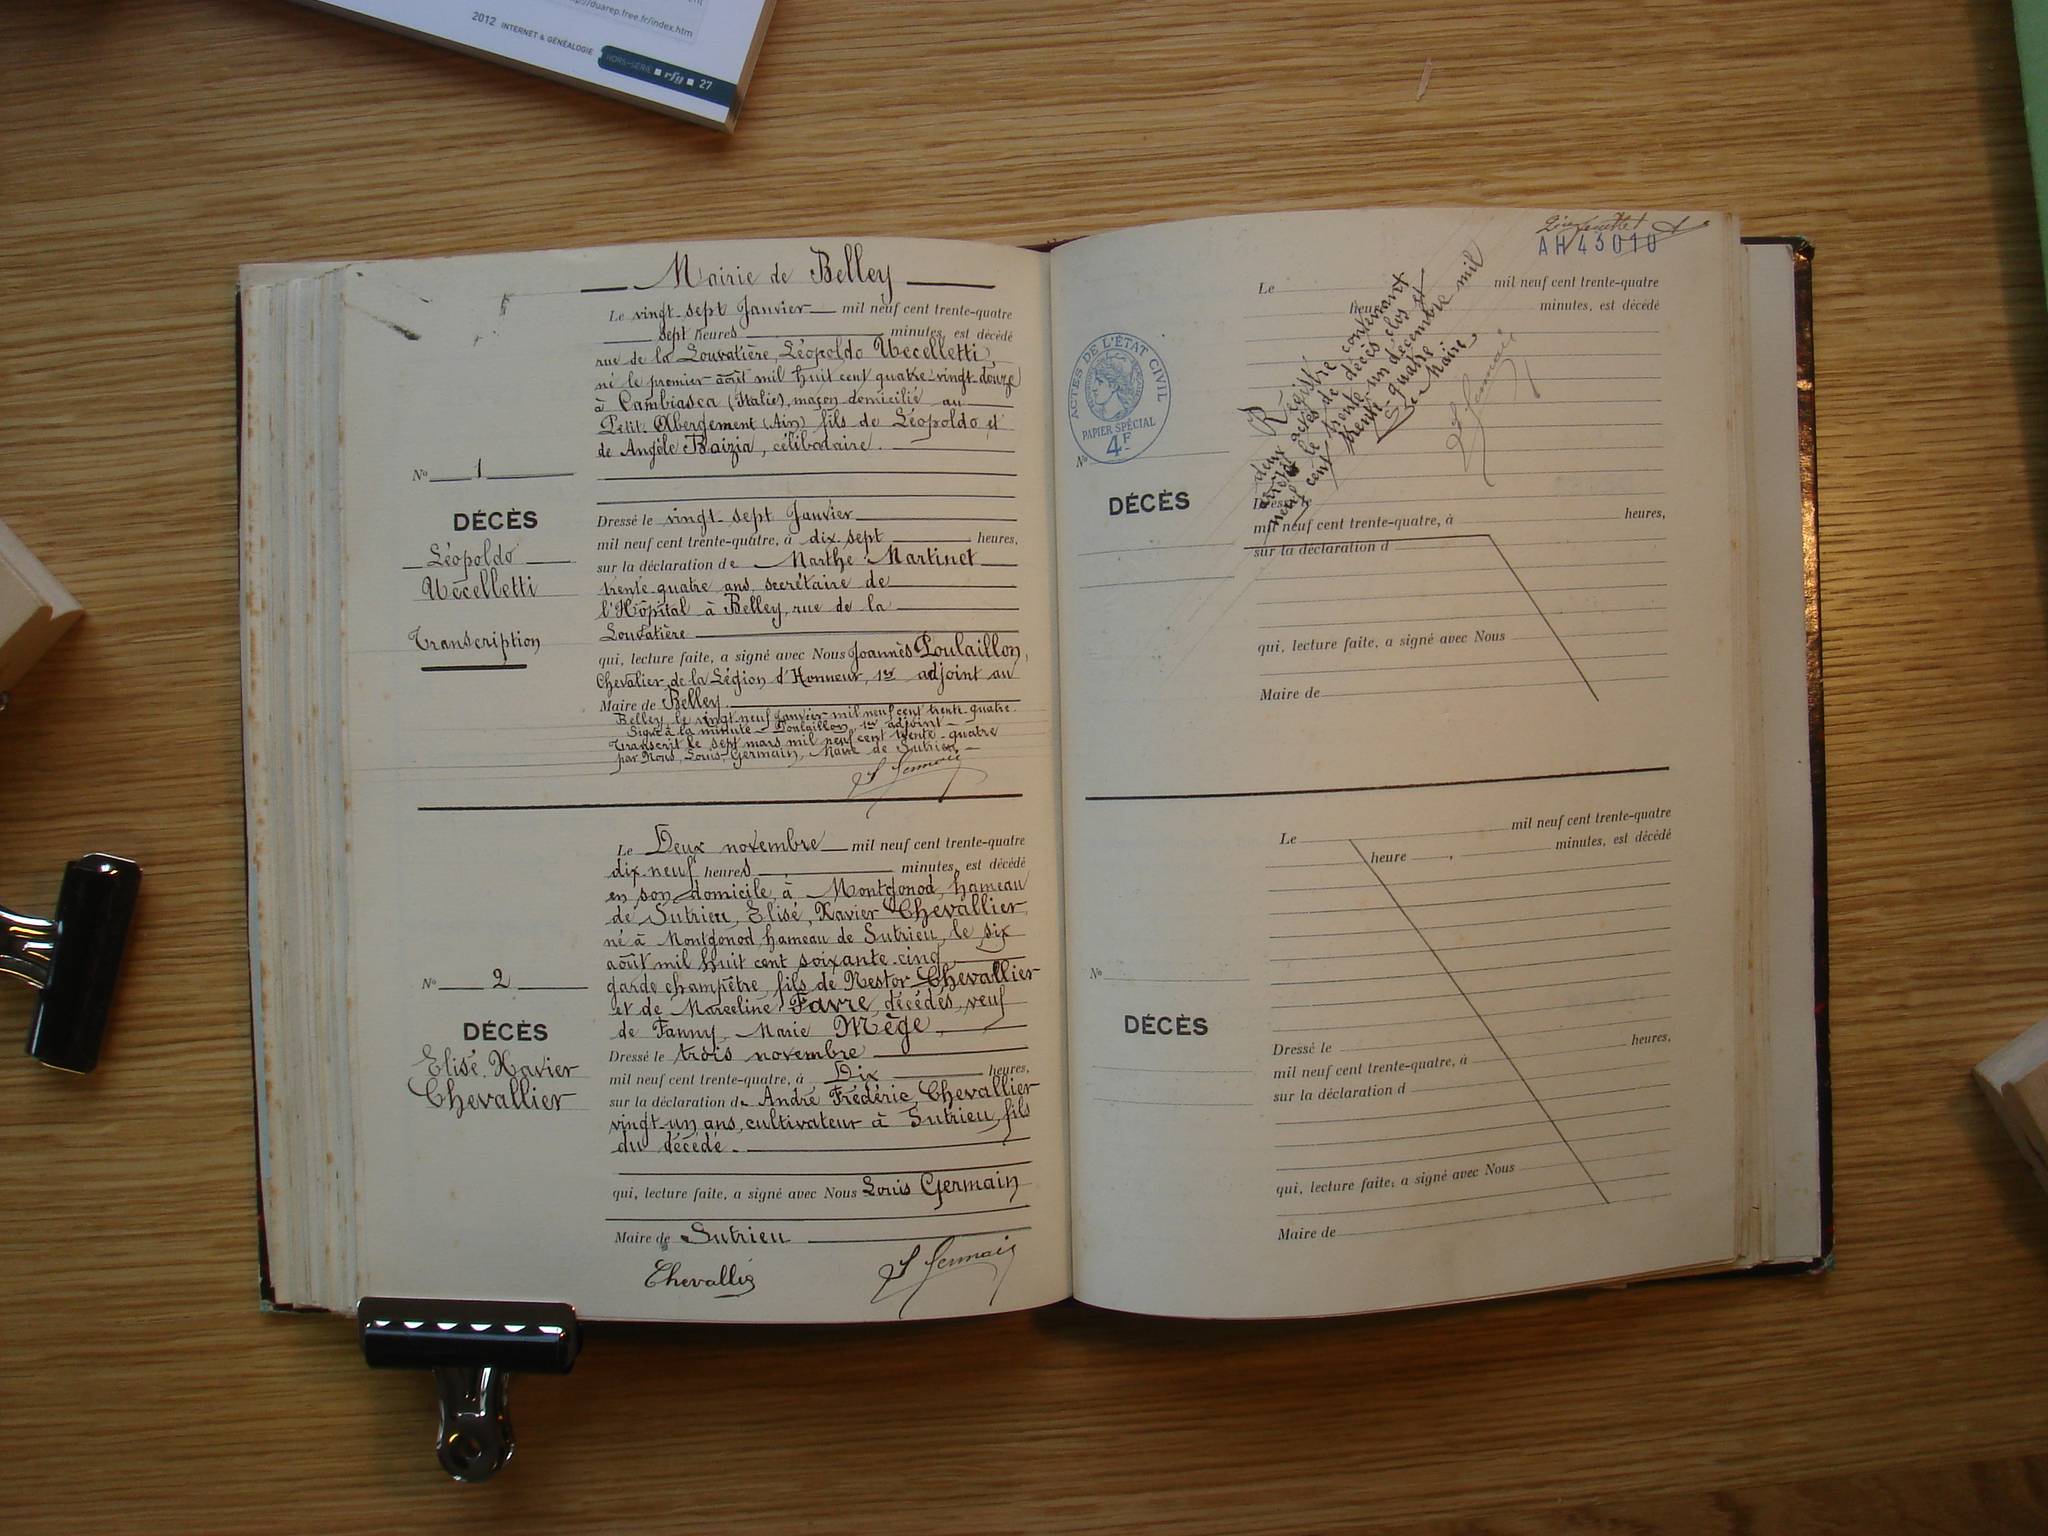 //duarep.free.fr/index.htm
2012 INTERNET & GÉNÉALOGIE
HORS-SÉRIE rfg 27
Mairie de Belley
Le vingt-sept Janvier mil neuf cent trente-quatre
sept heures minutes, est décédé
rue de la Louvatière, Léopoldo Ucecelletti
né le premier août mil huit cent quatre-vingt-douze
à Cambiasca (Italie), maçon domicilié au
Petit-Abergement (Ain) fils de Léopoldo et
de Angèle Baizia, célibataire.
No 1
DÉCÈS
Léopoldo
Ucecelletti
Transcription
Dressé le vingt-sept Janvier
mil neuf cent trente-quatre, à dix-sept heures,
sur la déclaration de Marthe Martinet
trente-quatre ans, secrétaire de
l'Hôpital à Belley, rue de la
Louvatière
qui, lecture faite, a signé avec Nous Joannès Poulaillon,
Chevalier de la Légion d'Honneur, 1er adjoint au
Maire de Belley
Belley, le vingt-neuf Janvier mil neuf cent trente-quatre.
Signé à la minute - Poulaillon, 1er adjoint
Transcrit le sept mars mil neuf cent trente-quatre
par Nous, Louis Germain, Maire de Sutrieu
L Germain
Le Deux novembre mil neuf cent trente-quatre
dix-neuf heures minutes, est décédé
en son domicile, à Montgonod, hameau
de Sutrieu, Elisé, Xavier Chevallier,
né à Montgonod hameau de Sutrieu, le six
août mil huit cent soixante-cinq,
garde champêtre, fils de Nestor Chevallier
et de Marceline Favre, décédés, veuf
de Fanny, Marie Mège,
No 2
DÉCÈS
Elisé Xavier
Chevallier
Dressé le trois novembre
mil neuf cent trente-quatre, à Dix heures,
sur la déclaration de André Frédéric Chevallier
vingt-un ans, cultivateur à Sutrieu, fils
du décédé.
qui, lecture faite, a signé avec Nous Louis Germain
Maire de Sutrieu
Chevallier
L Germain
AH 43010
Le mil neuf cent trente-quatre
heures minutes, est décédé
Régistre contenant
deux actes de décès clos et
arrêté le trente un décembre mil
neuf cent trente-quatre
Le Maire
L Germain
ACTES DE L'ÉTAT CIVIL
PAPIER SPÉCIAL
4F
No
DÉCÈS
Dressé le
mil neuf cent trente-quatre, à heures,
sur la déclaration d
qui, lecture faite, a signé avec Nous
Maire de
Le mil neuf cent trente-quatre
heure minutes, est décédé
No
DÉCÈS
Dressé le heures,
mil neuf cent trente-quatre, à
sur la déclaration d
qui, lecture faite, a signé avec Nous
Maire de